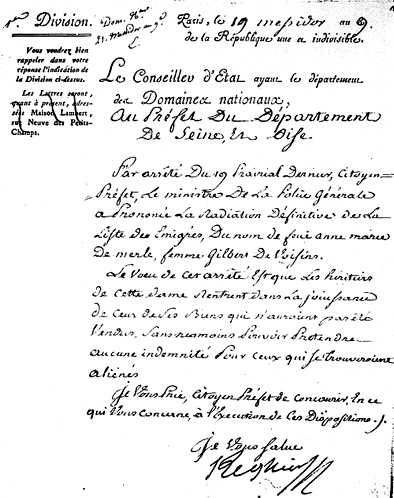 1re. Division.
Dom. Naux
21. messidor an 9.
Paris, le 19 messidor an 9.
de la République une et indivisible.
Vous voudrez bien
rappeler dans votre
réponse l'indication de
la Division ci-dessus.
Les Lettres seront,
quant à présent, adres-
sées Maison Lambert,
rue Neuve des Petits-
Champs.
Le Conseiller d'Etat ayant le département
des Domaines nationaux,
Au Préfet Du Département
De Seine, Et Oise.
Par arrêté Du 19 Prairial Dernier, Citoyen
Préfet, Le ministre De La Police Générale
a Prononcé La Radiation Définitive de La
Liste des Emigrés, Du nom de feue anne marie
De merle, femme Gilbert De Voisins.
Le Voeu de cet arrêté Est que Les héritiers
de Cette dame Rentrent Dans La jouissance
de Ceux de Ses Biens qui n'auroient pas été
Vendus, Sans néanmoins Pouvoir Prétendre
aucune indemnité Pour Ceux qui Se trouveroient
aliénés
Je Vous Prie, Citoyen Préfet de Concourir, En ce
qui Vous Concerne, à l'Exécution de Ces Dispositions.
Je Vous Salue
Regnier